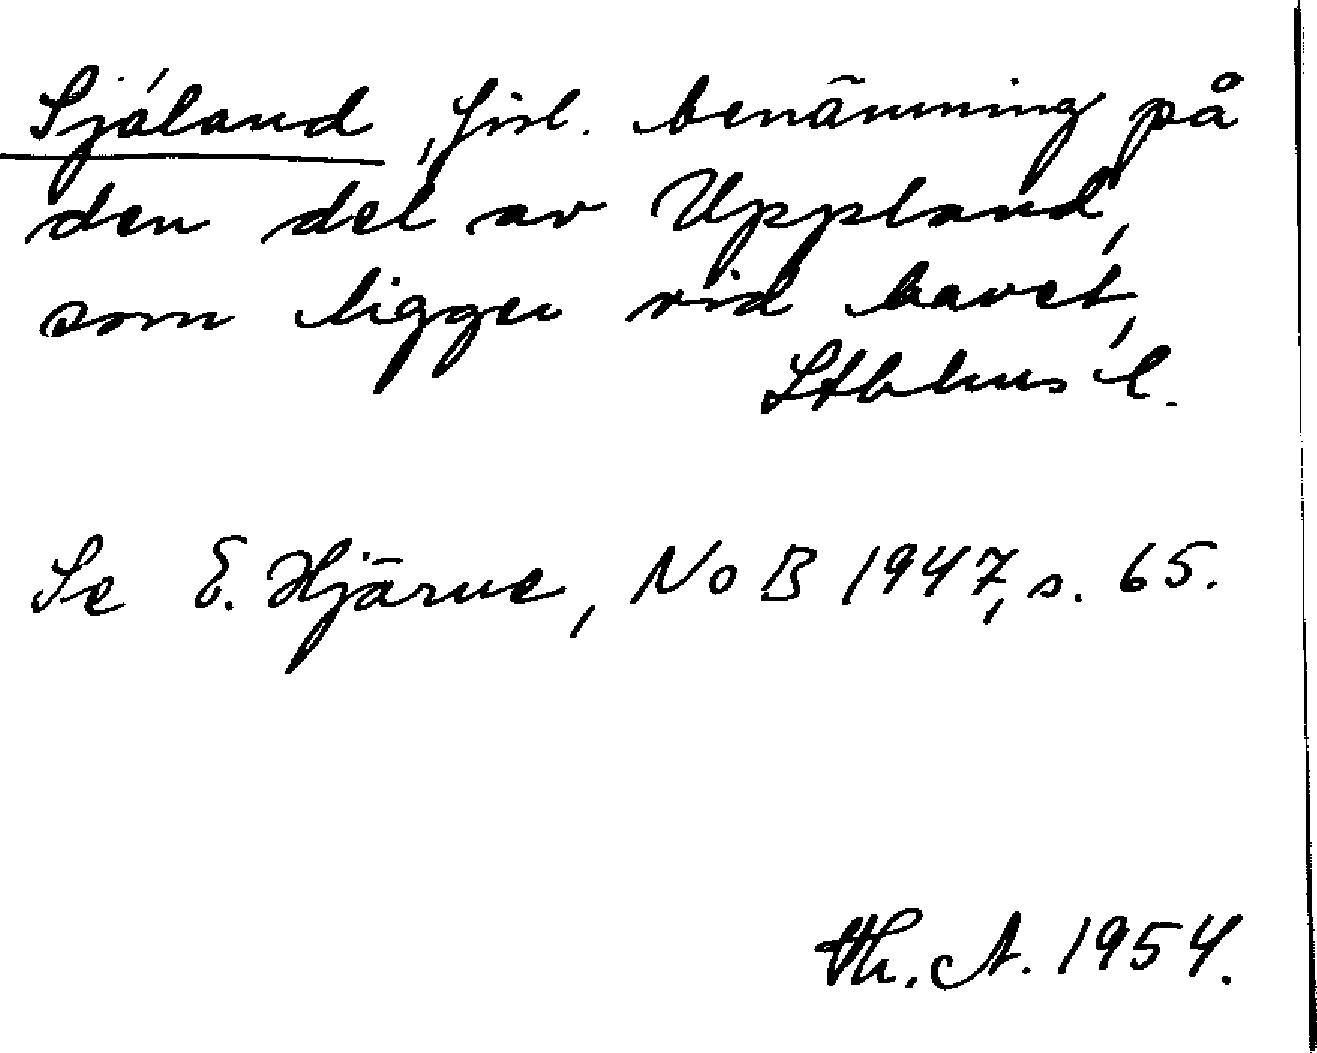 Sjáland, fisl. benämning på
den del av Uppland,
som ligger vid havet,
Sthlms l.
Se E. Hjärne, NoB 1947, s. 65.
Th. A. 1954.